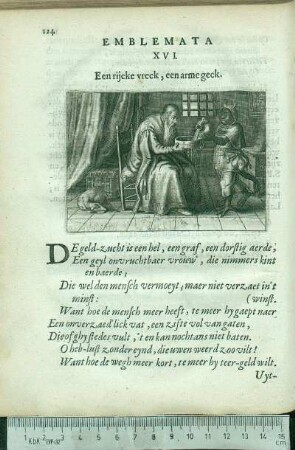 124
EMBLEMATA
XVI.
Een rijcke vreck, een arme geck.
DE geld-zucht is een hel, een graf, een dorstig aerde,
Een geyl onvruchtbaer vrouw, die nimmers kint
en baerde;
Die wel den mensch vermoeyt; maer niet verzaet in't
minst: (winst.
Want hoe de mensch meer heeft, te meer hy gaept naer
Een onverzaed'lick vat, een zifte vol van gaten,
Die of ghy stedes vult, 't en kan noch tans niet baten.
O heb-lust zonder eynd, die uwen weerd zoo vilt!
Want hoe de wegh meer kort, te meer hy teer-geld wilt.
Uyt-
1 2 3 4 5 6 7 8 9 10 11 12 13 14 15
cm